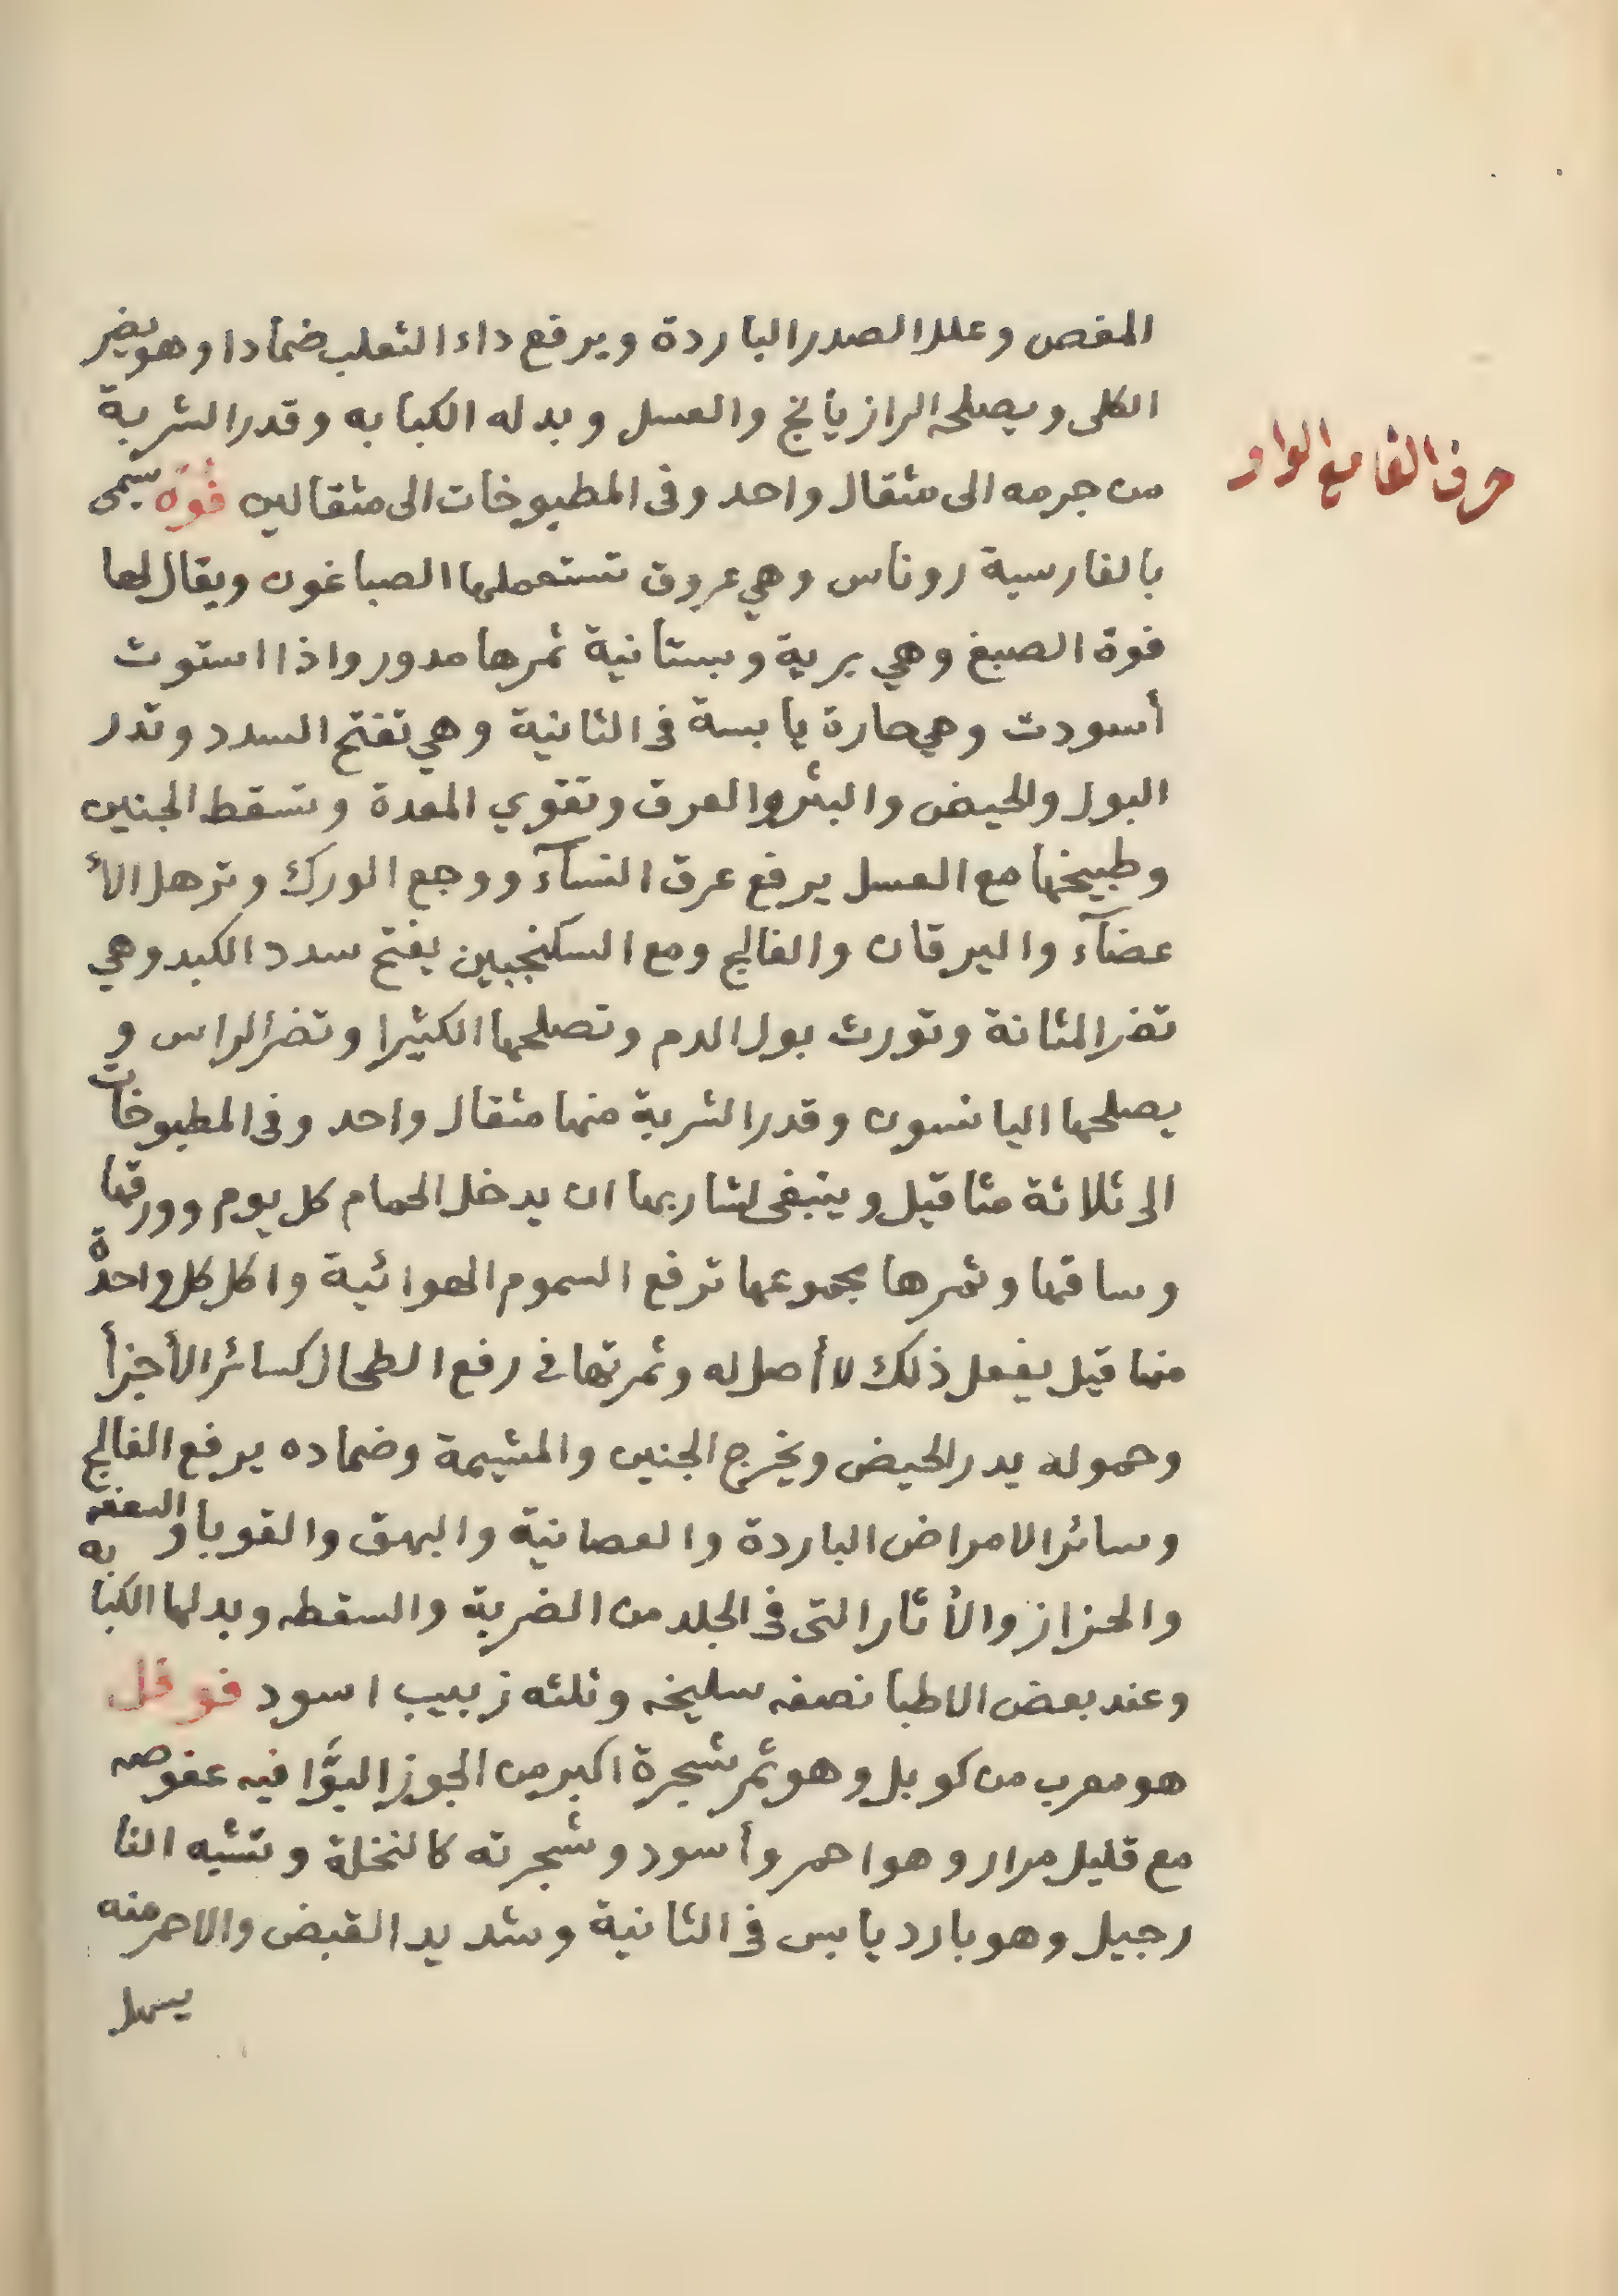 حرف الفا مع الواو
المغص وعلل الصدر الباردة ويرفع داء الثعلب ضمادا وهو يضر
الكلى ويصلحه الرازيانج والعسل وبدله الكبابه وقدر الشربة
من جرمه الى مثقال واحد وفى المطبوخات الى مثقالين فوّة يسمى
بالفارسية روناس وهي عروق تستعملها الصباغون ويقال لها
فوة الصبغ وهي برية وبستانية ثمرها مدور واذا استوت
أسودت وهي حارة يابسة فى الثانية وهي تفتح السدد وتدر
البول والحيض والبثر والعرق وتقوي المعدة وتسقط الجنين
وطبيخها مع العسل يرفع عرق النسآء ووجع الورك وترهل الأ
عضآء واليرقان والفالج ومع السكنجبين يفتح سدد الكبد وهي
تضر المثانة وتورث بول الدم وتصلحها الكثيرا وتضر الراس و
يصلحها اليانسون وقدر الشربة منها مثقال واحد وفى المطبوخات
الى ثلاثة مثاقيل وينبغى لشاربها ان يدخل الحمام كل يوم وورقها
وساقها وثمرها مجموعها ترفع السموم الهوائية واكل كل واحدة
منها قيل يفعل ذلك لا أصل له وثمرتها فى رفع الطحال كسائر الأجزأ
وحموله يدر الحيض ويخرج الجنين والمشيمة وضماده يرفع الفالج
وسائر الامراض الباردة والعصانية والبهق والقوبا والسعفه
والحزاز والأثار التى فى الجلد من الضربة والسقطه وبدلها الكبابه
وعند بعض الاطبا نصفه سليخه وثلثه زبيب اسود فوفل
هو معرب من كوبل وهو ثمر شجرة اكبر من الجوز البوَّا فيه عفوصه
مع قليل مرار وهو احمر وأسود وشجرته كالنخلة وتشبه النا
رجيل وهو بارد يابس فى الثانية وشديد القبض والاحمر منه
يسهل